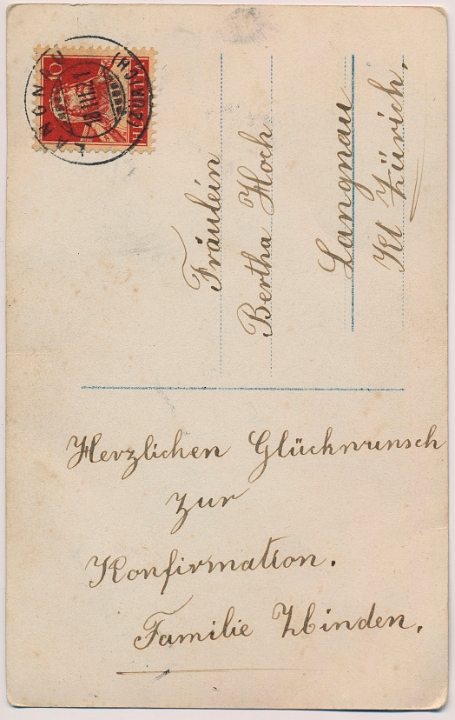 Fräulein
Bertha Hoch
Langnau
Kt Zürich.
Herzlichen Glückwunsch
zur
Konfirmation.
Familie Zbinden.
LANGNAU
(ZÜRICH)
10